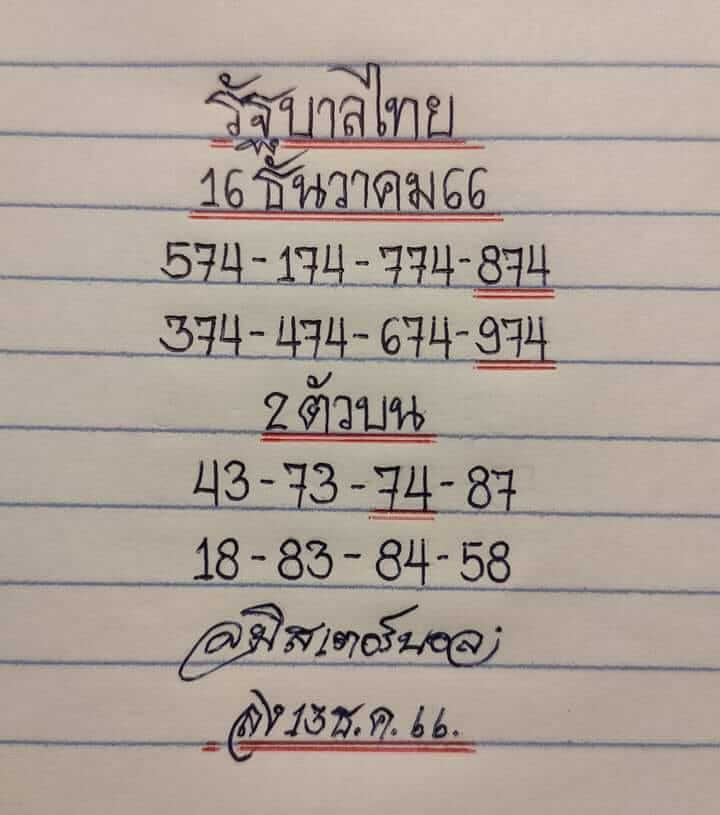 รัฐบาลไทย
16 ธันวาคม 66
574-174-774-874
374-474-674-974
2 ตัวบน
43-73-74-87
18-83-84-58
มิสเตอร์บอล
13 ธ.ค. 66.